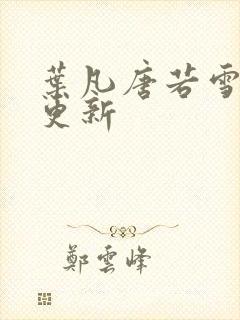 葉凡唐若雪
更新
鄭雲峰